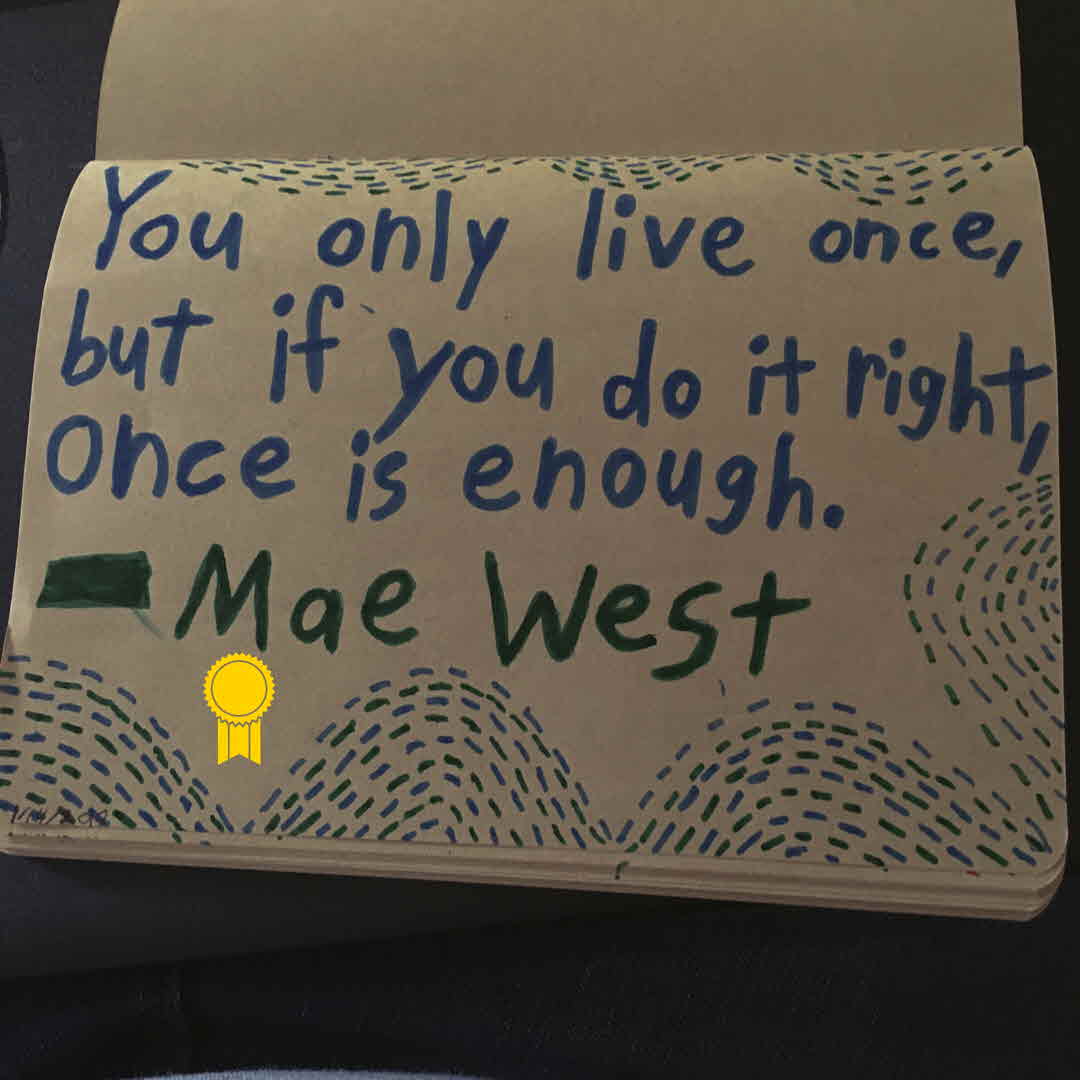 You only live once,
but if you do it right,
Once is enough.
- Mae West